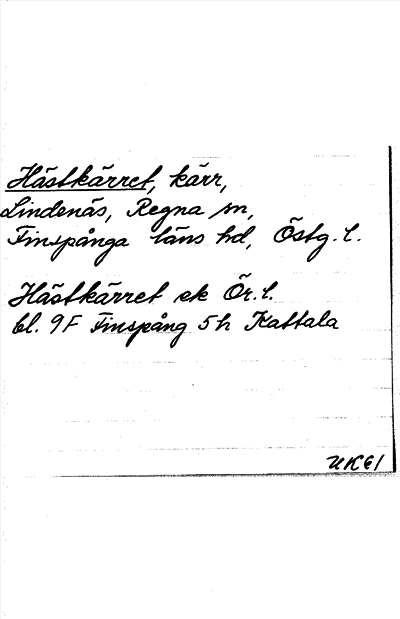 Hästkärret, kärr,
Lindenäs, Regna sn,
Finspånga läns hd, Östg. l.
Hästkärret ek Ör. l.
bl. 9F Finspång 5h Kattala
UK61